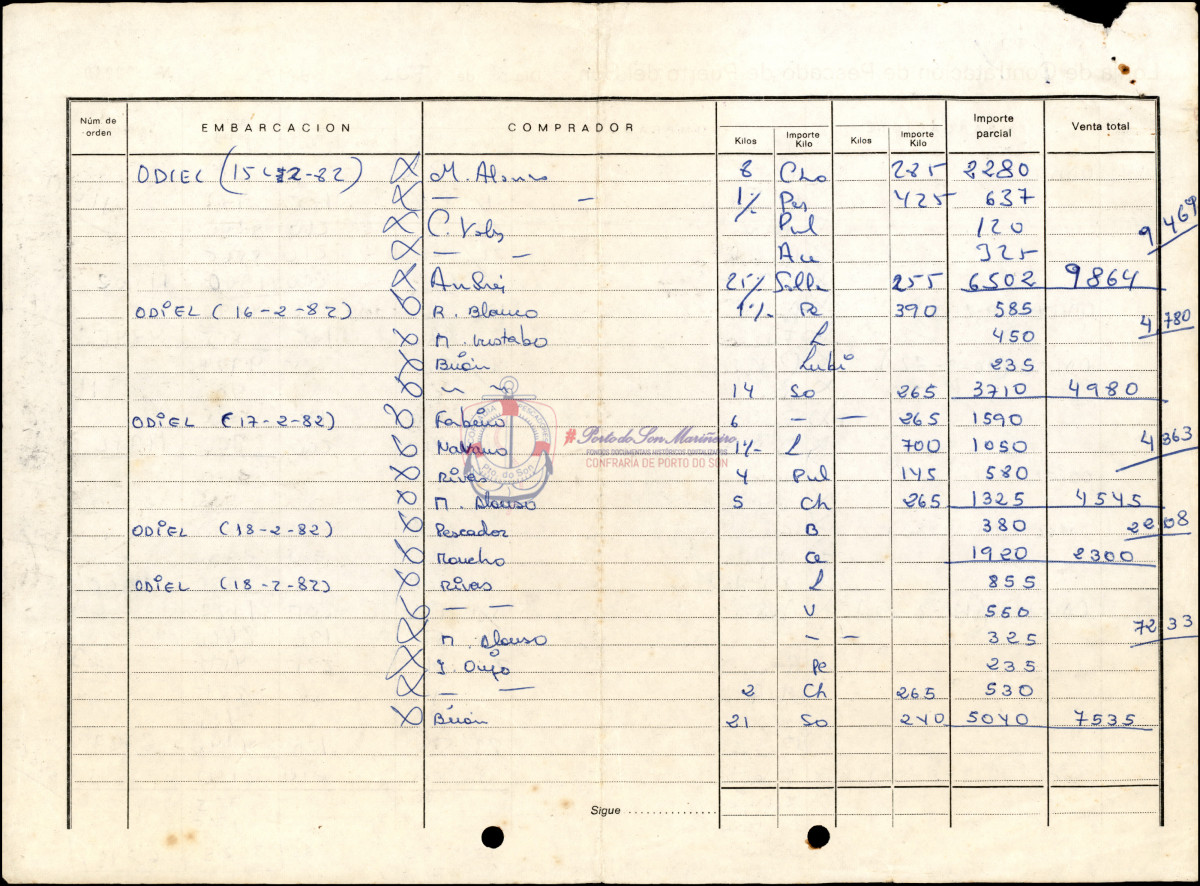 Núm de orden EMBARCACION COMPRADOR Kilos Importe Kilo Kilos Importe Kilo Importe parcial Venta total
ODIEL (15-2-82) M. Alonso 8 Cho 285 2280
— — 1½ Pes 425 637
C. Vols Pul 120 9469
— — Au 325
Andrés 25½ Solla 255 6502 9864
ODIEL (16-2-82) R. Blanco 1½ Pe 390 585
M. L 450 4780
Buán Lubi 235
~ ~ 14 So 265 3710 4980
ODIEL (17-2-82) 6 — — 265 1590
1½ L 700 1050 4363
Rivas 4 Pul 145 580
M. Alonso 5 Ch 265 1325 4545
ODIEL (18-2-82) Pescador B 380 2208
Moucho Ce 1920 2300
ODIEL (18-2-82) Rivas L 855
— — V 550
M. Alonso — — 325 7233
J. Oujo Pe 235
— — 2 Ch 265 530
Buán 21 So 240 5040 7535
Sigue
COFRARIA PESCADORES
Pto. do Son
#Porto do Son Mariñeiro
FONDOS DOCUMENTAIS HISTÓRICOS DIXITALIZADOS
CONFRARIA DE PORTO DO SON